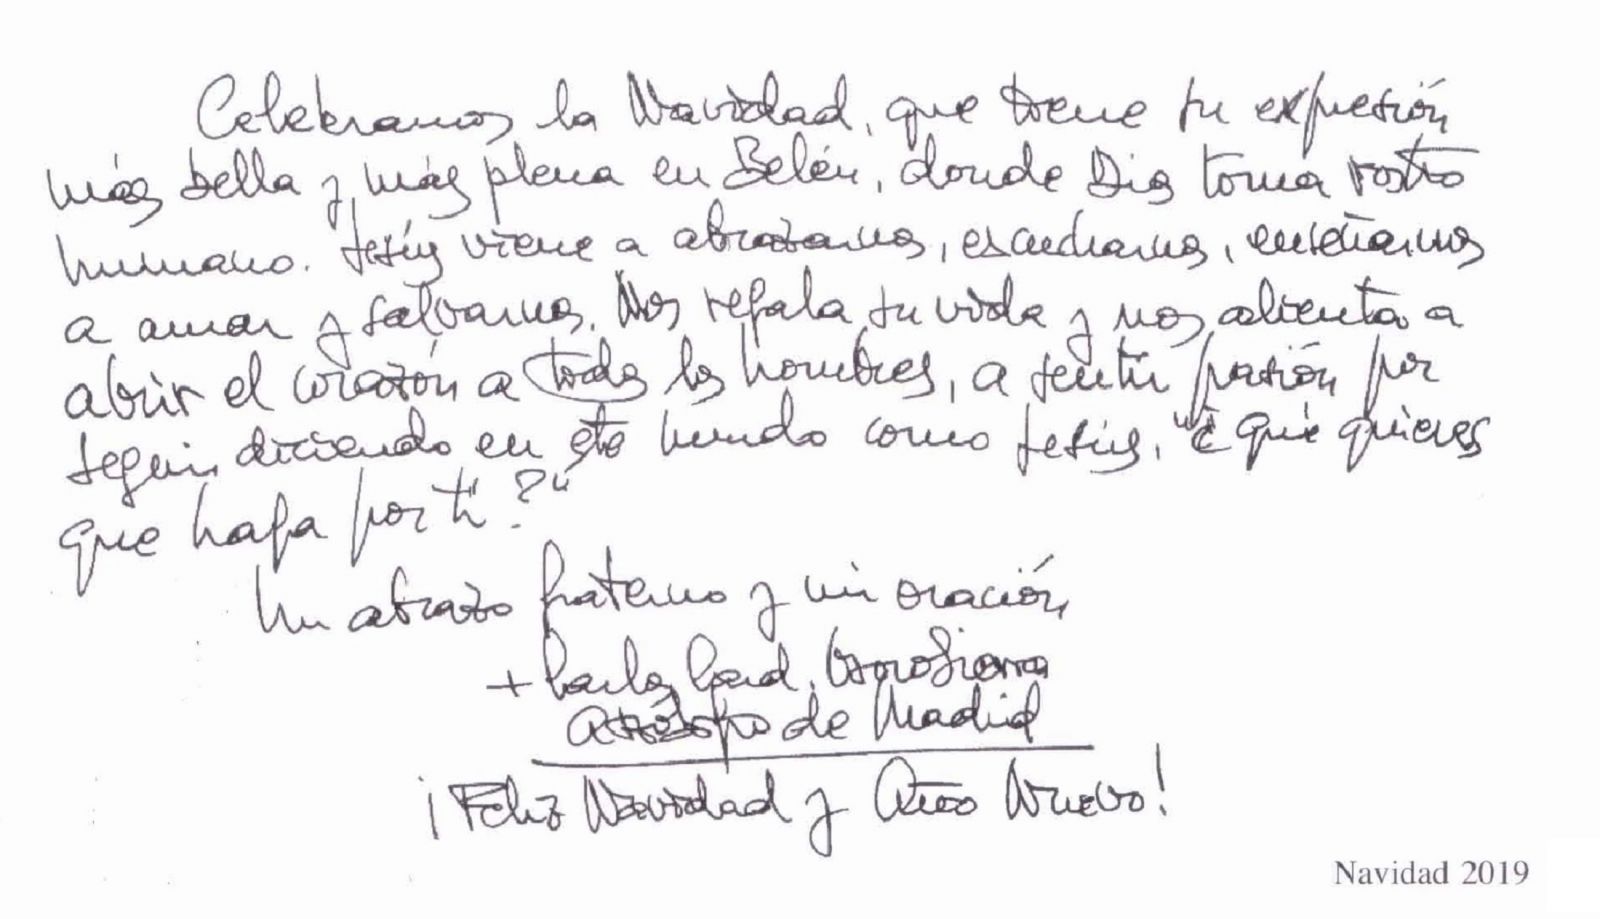 Celebramos la Navidad, que tiene su expresión
más bella y más plena en Belén, donde Dios toma rostro
humano. Jesús viene a abrazarnos, escucharnos, enseñarnos
a amar y salvarnos. Nos regala su vida y nos alienta a
abrir el corazón a todos los hombres, a sentir pasión por
seguir diciendo en este mundo como Jesús, "¿Qué quieres
que haga por ti?"
Un abrazo fraterno y mi oración
+ Carlos Card. Osoro Sierra
Arzobispo de Madrid
¡Feliz Navidad y Año Nuevo!
Navidad 2019